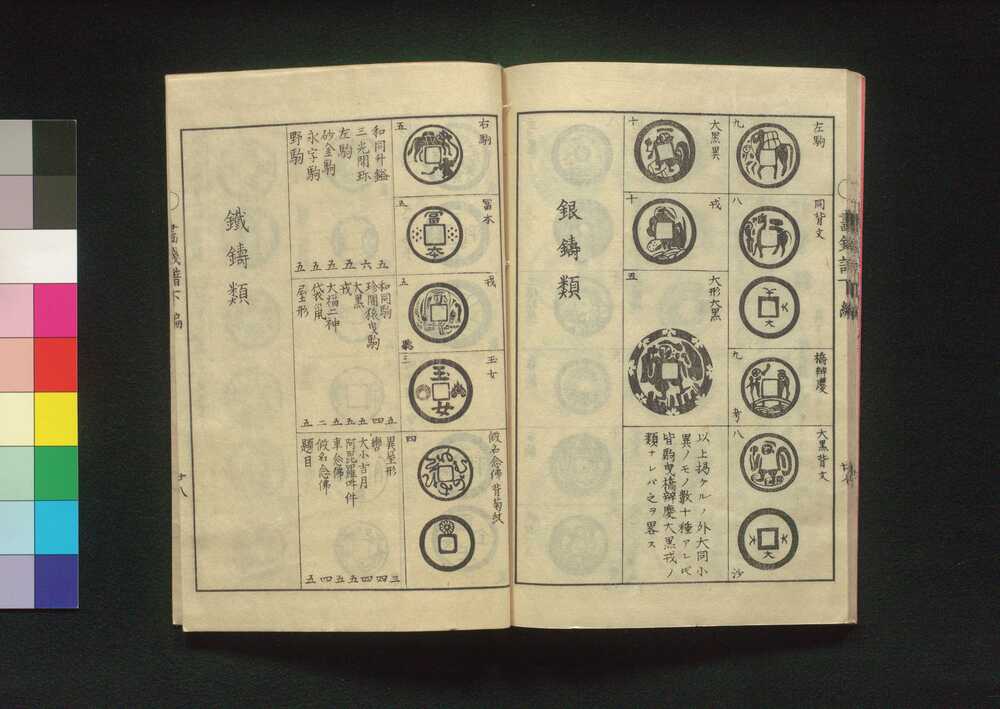 左駒
九
同背文
八
橋辨慶
九
大黒背文
八
大黒異
十
戎
十
大形大黒
五
以上掲ケルノ外大同小
異ノモノ数十種アレ𪜈
皆駒曳橋辨慶大黒戎ノ
類ナレバ之ヲ畧ス
銀鋳類
右駒
五
冨本
五
冨
本
戎
五
玉女
三
玉
女
仮名念佛背菊紋
四
和同升鎰 五
三光開珎 六
左駒 五
砂金駒 五
永字駒 五
野駒 五
和同駒 五
珍開猿曳駒 四
大黒 五
戎 五
大福二神 五
袋鼠 二
屋形 五
異屋形 三
轡 四
大小吉月 四
阿毘羅吽件 五
車念佛 五
仮名念佛 四
題目 五
鐵鋳類
十八